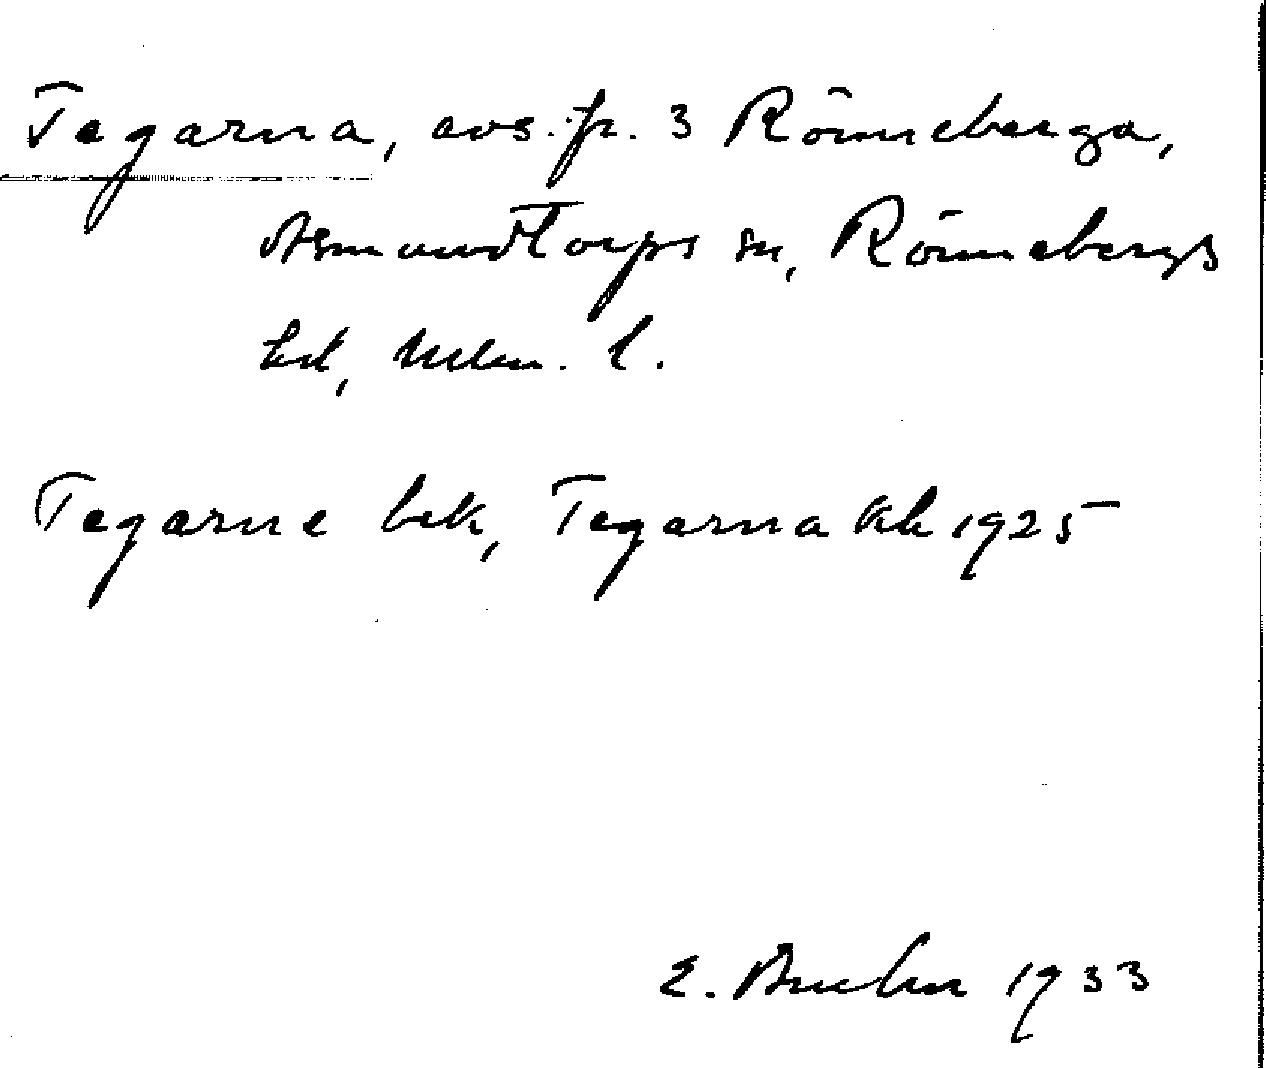 Tegarna, avs. fr. 3 Rönneberga,
Asmundtorps sn, Rönnebergs
hd, Malm. l.
Tegarne bek, Tegarna kk 1925
E. 1933